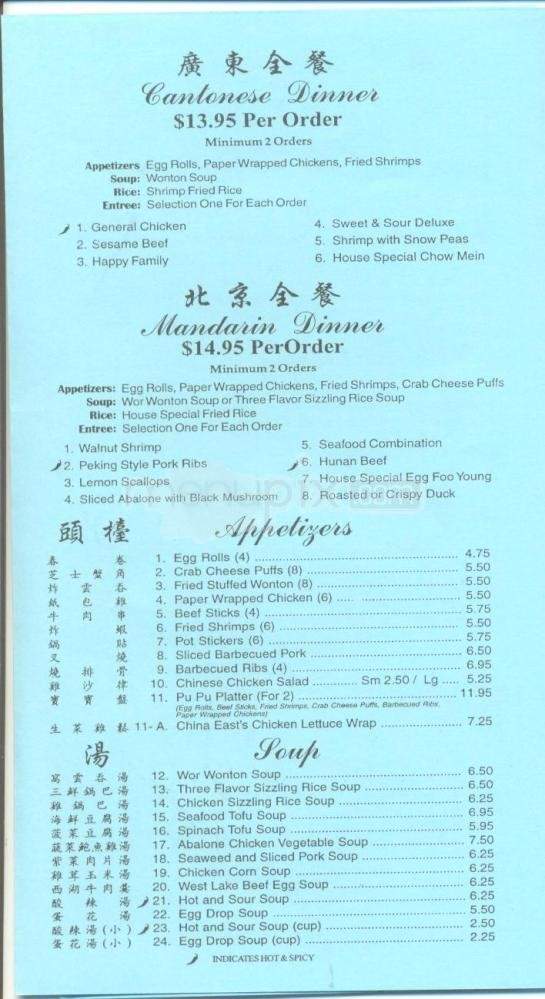 廣東全餐
Cantonese Dinner
$13.95 Per Order
Minimum 2 Orders
Appetizers Egg Rolls, Paper Wrapped Chickens, Fried Shrimps
Soup: Wonton Soup
Rice: Shrimp Fried Rice
Entree: Selection One For Each Order
1. General Chicken
2. Sesame Beef
3. Happy Family
4. Sweet & Sour Deluxe
5. Shrimp with Snow Peas
6. House Special Chow Mein
北京全餐
Mandarin Dinner
$14.95 PerOrder
Minimum 2 Orders
Appetizers: Egg Rolls, Paper Wrapped Chickens, Fried Shrimps, Crab Cheese Puffs
Soup: Wor Wonton Soup or Three Flavor Sizzling Rice Soup
Rice: House Special Fried Rice
Entree: Selection One For Each Order
1. Walnut Shrimp
2. Peking Style Pork Ribs
3. Lemon Scallops
4. Sliced Abalone with Black Mushroom
5. Seafood Combination
6. Hunan Beef
7. House Special Egg Foo Young
8. Roasted or Crispy Duck
頭檯 Appetizers
春卷 1. Egg Rolls (4) 4.75
芝士蟹角 2. Crab Cheese Puffs (8) 5.50
炸雲吞 3. Fried Stuffed Wonton (8) 5.50
紙包雞 4. Paper Wrapped Chicken (6) 5.50
牛肉串 5. Beef Sticks (4) 5.75
炸蝦 6. Fried Shrimps (6) 5.50
鍋貼 7. Pot Stickers (6) 5.75
叉燒 8. Sliced Barbecued Pork 6.50
燒排骨 9. Barbecued Ribs (4) 6.95
雞沙律 10. Chinese Chicken Salad Sm 2.50 / Lg 5.25
寶寶盤 11. Pu Pu Platter (For 2) 11.95
(Egg Rolls, Beef Sticks, Fried Shrimps, Crab Cheese Puffs, Barbecued Ribs,
Paper Wrapped Chickens)
生菜雞鬆 11-A. China East's Chicken Lettuce Wrap 7.25
湯 Soup
窩雲吞湯 12. Wor Wonton Soup 6.50
三鮮鍋巴湯 13. Three Flavor Sizzling Rice Soup 6.50
雞鍋巴湯 14. Chicken Sizzling Rice Soup 6.25
海鮮豆腐湯 15. Seafood Tofu Soup 6.95
菠菜豆腐湯 16. Spinach Tofu Soup 5.95
蔬菜鮑魚雞湯 17. Abalone Chicken Vegetable Soup 7.50
紫菜肉片湯 18. Seaweed and Sliced Pork Soup 6.25
雞茸玉米湯 19. Chicken Corn Soup 6.25
西湖牛肉羹 20. West Lake Beef Egg Soup 6.25
酸辣湯 21. Hot and Sour Soup 6.25
蛋花湯 22. Egg Drop Soup 5.50
酸辣湯(小) 23. Hot and Sour Soup (cup) 2.50
蛋花湯(小) 24. Egg Drop Soup (cup) 2.25
INDICATES HOT & SPICY